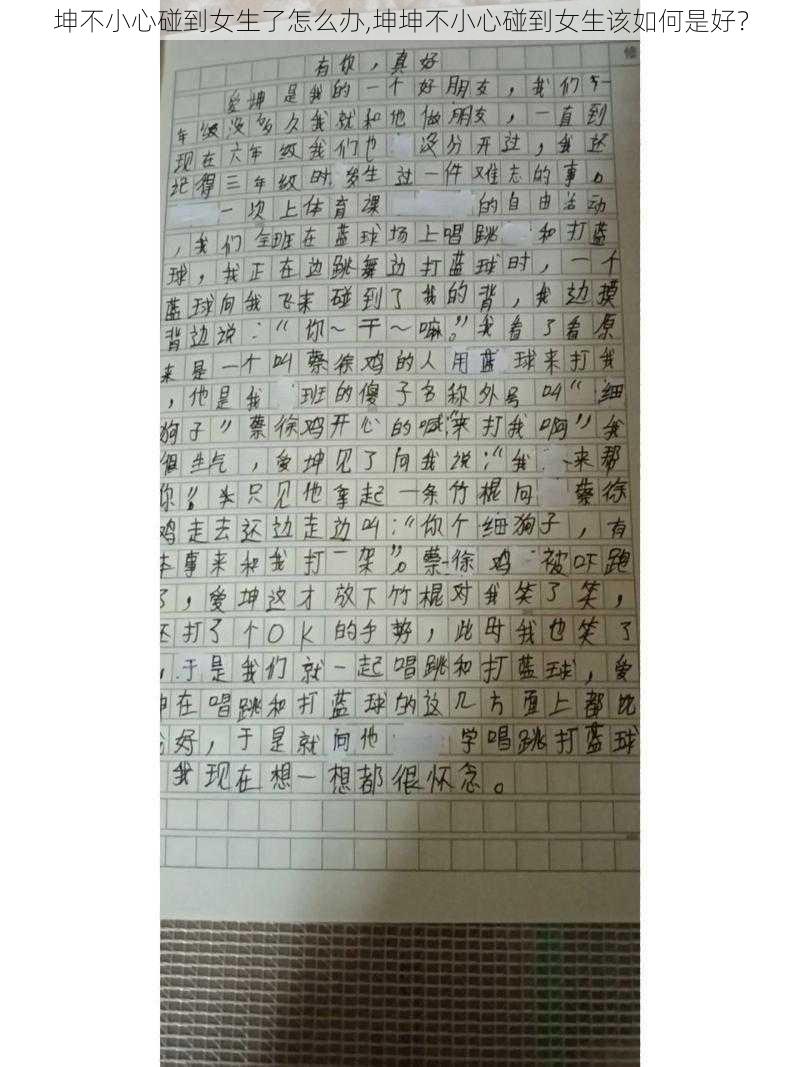 坤不小心碰到女生了怎么办,坤坤不小心碰到女生该如何是好?
有你，真好
爱坤是我的一个好朋友，我们一
年级没多久我就和他做朋友，一直到
现在六年级我们也没分开过，我还
记得三年级时发生过一件难忘的事。
一次上体育课的自由活动
，我们全班在蓝球场上唱跳和打蓝
球，我正在边跳舞边打蓝球时，一个
蓝球向我飞来碰到了我的背，我边摸
背边说：“你～干～嘛。”我看了看原
来是一个叫蔡徐鸡的人用蓝球来打我
，他是我班的傻子名称外号叫“细
狗子”蔡徐鸡开心的喊“来打我啊”我
很生气，爱坤见了向我说：“我来帮
你”。只见他拿起一条竹棍向蔡徐
鸡走去还边走边叫：“你个细狗子，有
本事来和我打一架”。蔡徐鸡被吓跑
了，爱坤这才放下竹棍对我笑了笑，
还打了个OK的手势，此时我也笑了
，于是我们就一起唱跳和打蓝球，爱
坤在唱跳和打蓝球的这几方面上都比
我好，于是就向他学唱跳打蓝球
我现在想一想都很怀念。